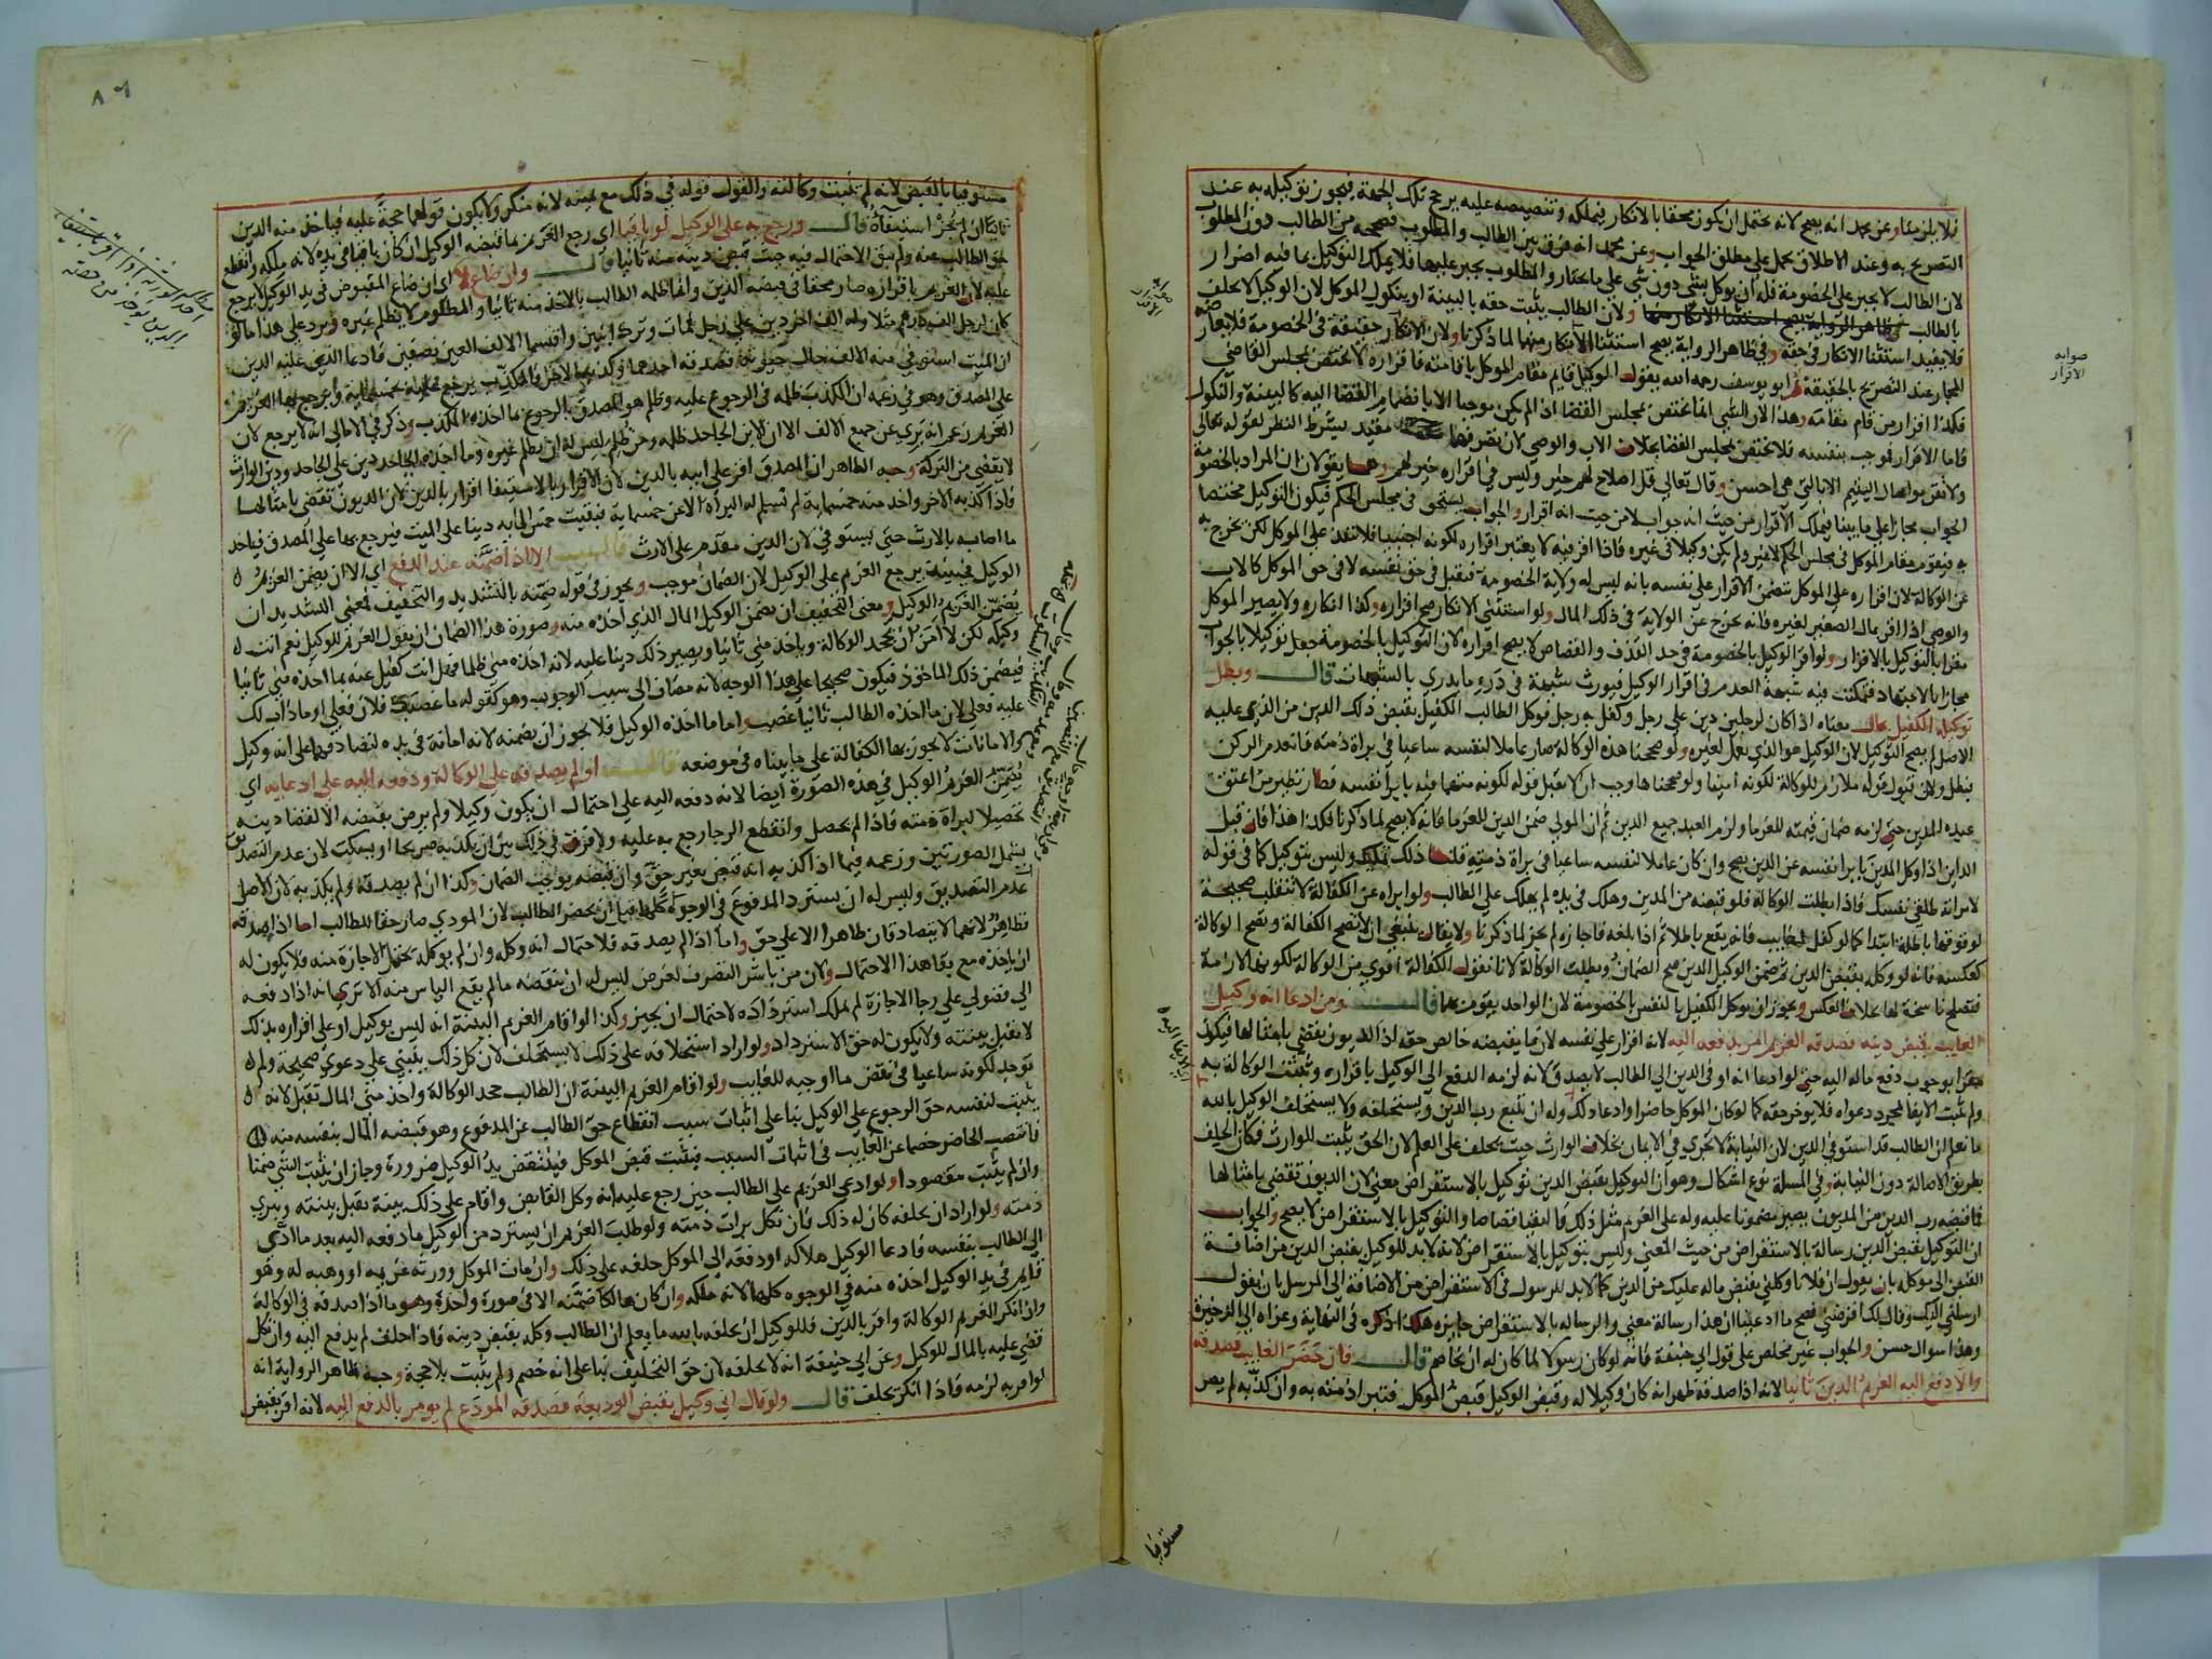 فلا يلزمنا وعن محمد انه يصح لانه يحتمل ان يكون محقا بالانكار فيملكه وتنصيصه عليه يرجح تلك الجهة فيجوز توكيله به عند
التصريح به وعند الاطلاق يحمل على مطلق الجواب وعن محمد انه فرق بين الطالب والمطلوب فصححه من الطالب دون المطلوب
لان الطالب لا يجبر على الخصومة فله ان يوكل بشي دون شي على ما يختار والمطلوب يجبر عليها فلا يملك التوكيل بما فيه اضرار
بالطالب ولان الطالب يثبت حقه بالبينة او بنكول الموكل لان الوكيل لا يحلف
فلا يفيد استثنا الانكار في حقه وفي ظاهر الرواية يصح استثنا الانكار منهما لما ذكرنا ولان الانكار حقيقة في الخصومة فلا يعارضه
المجاز عند التصريح بالحقيقة ثم ابو يوسف رحمه الله يقول الوكيل قايم مقام الموكل باقامته فاقراره لا يختص بمجلس القاضي
فكذا اقرار من قام مقامه وهذا لان الشي انما يختص بمجلس القضا اذا لم يكن موجبا الا بانضمام القضا اليه كالبينة والنكول
فاما الاقرار فموجب بنفسه فلا يختص بمجلس القضا بخلاف الاب والوصي لان تصرفهما مقيد بشرط النظر لقوله تعالى
ولا تقربوا مال اليتيم الا بالتي هي احسن وقال تعالى قل اصلاح لهم خير وليس في اقراره خير لهم وهما يقولان ان المراد بالخصومة
الجواب مجازا على ما بينا فيملك الاقرار من حيث انه جواب لا من حيث انه اقرار والجواب يستحق في مجلس الحكم فيكون التوكيل مختصا
به فيقوم مقام الموكل في مجلس الحكم لا غير ولم يكن وكيلا في غيره فاذا اقر فيه لا يعتبر اقراره لكونه اجنبيا فلا تنفذ على الموكل لكن يخرج به
عن الوكالة لان اقراره على الموكل يتضمن الاقرار على نفسه بانه ليس له ولاية الخصومة فيقبل في حق نفسه لا في حق الموكل كالاب
والوصي اذا اقر بمال الصغير لغيره فانه يخرج عن الولاية في ذلك المال ولو استثنى الانكار صح اقراره وكذا انكاره ولا يصير الموكل
مقرا بالتوكيل بالاقرار ولو اقر الوكيل بالخصومة في حد القذف والقصاص لا يصح اقراره لان التوكيل بالخصومة جعل توكيلا بالجواب
مجازا بالاجتهاد فتمكنت فيه شبهة العدم في اقرار الوكيل فيورث شبهة في درء ما يدري بالشبهات قال وبطل
توكيله الكفيل بمال معناه اذا كان لرجل دين على رجل وكفل به رجل فوكل الطالب الكفيل بقبض ذلك الدين من الذي عليه
الاصل لم يصح التوكيل لان الوكيل هو الذي يعمل لغيره ولو صححنا هذه الوكالة صار عاملا لنفسه ساعيا في براة ذمته فانعدم الركن
فبطل ولان قبول قوله ملازم للوكالة لكونه امينا ولو صححناها وجب ان لا يقبل قوله لكونه متهما فيه بابرا نفسه فصار نظير من اعتق
عبده المدين حتى لزمه ضمان قيمته للغرما ولزم العبد جميع الدين ثم ان المولى ضمن الدين للغرما فانه لا يصح لما ذكرنا فكذا هذا فان قيل
الداين اذا وكل المدين بابرا نفسه عن الدين يصح وان كان عاملا لنفسه ساعيا في براة ذمته قلنا ذلك تمليك وليس بتوكيل كما في قوله
لامراته طلقي نفسك فاذا بطلت الوكالة فلو قبضه من المدين وهلك في يده لم يهلك على الطالب ولو ابراه عن الكفالة لا تنقلب صحيحة
لوقوعها باطلة ابتدا كما لو كفل لغايب فانه يقع باطلا ثم اذا بلغه فاجازه لم يجز لما ذكرنا ولا يقال ينبغي ان لا تصح الكفالة وتصح الوكالة
كعكسه فانه لو وكله بقبض الدين ثم ضمن الوكيل الدين صح الضمان وبطلت الوكالة لانا نقول الكفالة اقوي من الوكالة لكونها لازمة
فتصلح ناسخة لها بخلاف العكس ويجوز ان يوكل الكفيل بالنفس بالخصومة لان الواحد يقوم بهما قال ومن ادعا انه وكيل
الغايب بقبض دينه فصدقه الغريم امر بدفعه اليه لانه اقرار على نفسه لان ما يقبضه خالص حقه اذ الديون تقضي بامثالها فيكون
مقرا بوجوب دفع ماله اليه حتى لو ادعا انه اوفى الدين الي الطالب لا يصدق لانه لزمه الدفع الى الوكيل باقراره وتثبت الوكالة به
ولم يثبت الايفا بمجرد دعواه فلا يوخر حقه كما لو كان الموكل حاضرا وادعا ذلك وله ان يتبع رب الدين ويستحلفه ولا يستحلف الوكيل بالله
ما تعلم ان الطالب قد استوفي الدين لان النيابة لا تجري في الايمان بخلاف الوارث حيث يحلف على العلم لان الحق يثبت للوارث فكان الحلف
بطريق الاصالة دون النيابة وفي المسلة نوع اشكال وهو ان التوكيل بقبض الدين توكيل بالاستقراض معني لان الديون تقضي بامثالها
فما قبضه رب الدين من المديون يصير مضمونا عليه وله على الغريم مثل ذلك فالتقيا قصاصا والتوكيل بالاستقراض لا يصح والجواب
ان التوكيل بقبض الدين رسالة بالاستقراض من حيث المعني وليس بتوكيل بالاستقراض لانه لا بد للوكيل بقبض الدين من اضافة
القبض الى موكله بان يقول ان فلانا وكلني بقبض ماله عليك من الدين كما لا بد للرسول في الاستقراض من الاضافة الى المرسل بان يقول
ارسلني اليك وقال لك اقرضني فصح ما ادعينا ان هذا رسالة معني والرسالة بالاستقراض جايزه هكذا ذكره في النهاية وعزاه الي الذخيرة
وهذا سوال حسن والجواب غير مخلص على قول ابي حنيفة فانه لو كان رسولا لما كان له ان يخاصم قال فان حضر الغايب فصدقه
والا دفع اليه الغريم الدين ثانيا لانه اذا صدقه ظهر انه كان وكيلا له وقبض الوكيل قبض الموكل فتبرا ذمته به وان كذبه لم يصر
صوابه
الاقرار
مستوفيا
٨٦
مستوفيا بالقبض لانه لم تثبت وكالته والقول قوله في ذلك مع يمينه لانه منكر ولا يكون قولهما حجة عليه فياخذ منه الدين
ثانيا ان لم يجز استيفاؤه قال ورجع به على الوكيل لو باقيا اي رجع الغريم بما قبضه الوكيل ان كان باقيا في يده لانه ملكه وانقطع
حق الطالب عنه ولم يبق الاحتمال فيه حيث قبض دينه منه ثانيا قال وان ضاع لا اي ان ضاع المقبوض في يد الوكيل لا يرجع
عليه لان الغريم باقراره صار محقا في قبضه الدين وانما ظلمه الطالب بالاخذ منه ثانيا والمظلوم لا يظلم غيره ويرد على هذا ما لو
كان لرجل الف درهم مثلا وله الف اخر دين على رجل فمات وترك ابنين واقتسما الالف العين نصفين فادعا الذي عليه الدين
ان الميت استوفي منه الالف حال حيوته فصدقه احدهما وكذبه الاخر فالمكذب يرجع عليه بخمسماية ويرجع بها الغريم
على المصدق وهو في زعمه ان المكذب ظلمه في الرجوع عليه وظلم هو المصدق بالرجوع ما اخذه المكذب وذكر في الامالي انه لا يرجع لان
الغريم زعم انه بري عن جميع الالف الا ان الابن الجاحد ظلمه ومن ظلم ليس له ان يظلم غيره وما اخذه الجاحد دين على الجاحد ودين الوارث
لا يقضي من التركة وجه الظاهر ان المصدق اقر على ابيه بالدين لان الاقرار بالاستيفا اقرار بالدين لان الديون تقضي بامثالها
فاذا كذبه الاخر واخذ منه خمسماية لم تسلم له البراة الا عن خمسماية فبقيت خمس الماية دينا على الميت فيرجع بها على المصدق فياخذ
ما اصابه بالارث حتى يستوفي لان الدين مقدم على الارث قال الا اذا ضمنه عند الدفع اي الا ان يضمن الغريم
الوكيل فحينيذ يرجع الغريم على الوكيل لان الضمان موجب ويجوز في قوله ضمنه بالتشديد والتخفيف فمعني التشديد ان
يضمن الغريم الوكيل ومعنى التخفيف ان يضمن الوكيل المال الذي اخذه منه وصورة هذا الضمان ان يقول الغريم للوكيل نعم انت
وكيله لكن لا آمن ان يجحد الوكالة وياخذ مني ثانيا ويصير ذلك دينا عليه لانه اخذه مني ظلما فهل انت كفيل عنه بما اخذه مني ثانيا
فيضمن ذلك الماخوذ فيكون صحيحا على هذا الوجه لانه مضاف الى سبب الوجوب وهو كقوله ما غصبك فلان فعلي او ما ذاب لك
عليه فعلي لان ما اخذه الطالب ثانيا غصب واما ما اخذه الوكيل فلا يجوز ان يضمنه لانه امانة في يده لتصادقهما على انه وكيل
والامانات لا تجوز بها الكفالة على ما بيناه في موضعه قال او لم يصدقه على الوكالة ودفعه اليه على ادعايه اي
يضمن الغريم الوكيل في هذه الصورة ايضا لانه دفعه اليه على احتمال ان يكون وكيلا ولم يرض بقبضه الا لقضا دينه
تحصيلا لبراة ذمته فاذا لم يحصل وانقطع الرجا رجع به عليه ولا فرق في ذلك بين ان يكذبه صريحا او يسكت لان عدم التصديق
يشمل الصورتين وزعمه فيما اذا كذبه انه قبض بغير حق وان قبضه يوجب الضمان وكذا ان لم يصدقه ولم يكذبه لان الاصل
عدم التصديق وليس له ان يسترد المدفوع في الوجوه كلها قبل ان يحضر الطالب لان المودي صار حقا للطالب اما اذا صدقه
فظاهر لانهما لا يتصادقان ظاهرا الا على حق واما اذا لم يصدقه فلاحتمال انه وكله وان لم يوكله يحتمل الاجازة منه فلا يكون له
ان ياخذه مع بقا هذا الاحتمال ولان من باشر التصرف لغرض ليس له ان ينقضه ما لم يقع الياس منه الا تري انه اذا دفعه
الي فضولي على رجا الاجازة لم يملك استرداده لاحتمال ان يجيز وكذا لو اقام الغريم البينة انه ليس بوكيل او على اقراره بذلك
لا تقبل بينته ولا يكون له حق الاسترداد ولو اراد استحلافه على ذلك لا يستحلف لان كل ذلك يبتني على دعوي صحيحة ولم
توجد لكونه ساعيا في نقض ما اوجبه للغايب ولو اقام الغريم البينة ان الطالب جحد الوكالة واخذ مني المال تقبل لانه
يثبت لنفسه حق الرجوع على الوكيل بنا على اثبات سبب انقطاع حق الطالب عن المدفوع وهو قبضه المال بنفسه منه
فانتصب الحاضر خصما عن الغايب في اثبات السبب فيثبت قبض الموكل فينتقض يد الوكيل ضرورة وجاز ان يثبت الشي ضمنا
وان لم يثبت مقصودا ولو ادعي الغريم على الطالب حين رجع عليه انه وكل القابض واقام على ذلك بينة تقبل بينته ويبري
ذمته ولو اراد ان يحلفه كان له ذلك فان نكل برات ذمته ولو طلب الغريم ان يسترد من الوكيل ما دفعه اليه بعد ما ادى
الى الطالب بنفسه فادعا الوكيل هلاكه او دفعه الى الموكل حلفه على ذلك وان مات الموكل وورثه غريمه او وهبه له وهو
قايم في يد الوكيل اخذه منه في الوجوه كلها لانه ملكه وان كان هالكا ضمنه الا في صورة واحدة وهو ما اذا صدقه في الوكالة
وان انكر الغريم الوكالة واقر بالدين فللوكيل ان يحلفه بالله ما يعلم ان الطالب وكله بقبض دينه فاذا حلف لم يدفع اليه وان نكل
قضي عليه بالمال للوكيل وعن ابي حنيفة انه لا يحلفه لان حق التحليف بنا على انه خصم ولم يثبت بلا حجة وجه ظاهر الرواية انه
لو اقر به لزمه فاذا انكر يحلف قال ولو قال اني وكيل بقبض الوديعة فصدقه المودع لم يومر بالدفع اليه لانه اقر بقبض